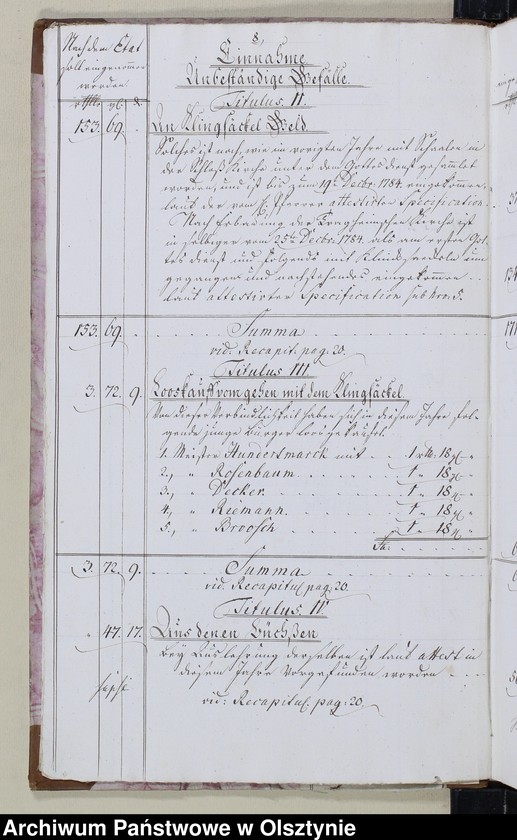 8,
Nach dem Etat
soll eingenommen
worden
rthlr. gl. d.
Einnahme
Unbeständige Gefälle.
Titulus II.
153. 69. An Klingsäckel Geld.
Solches ist nach wie im vorigten Jahre mit Schaalen in
der Schloß Kirche unter dem Gottesdienst gesammlet
worden, und ist bis zum 19t Decbr. 1784. eingekommen,
laut der vom H. Pfarrer attestirten Specification.
Nach Erbauung der Kirche ist
in selbiger vom 25t Decbr. 1784. als am ersten Got-
tes dienst und folgends mit um
gegangen und nachstehendes eingekommen
laut attestirter Specification sub Nro. 5.
153. 69. Summa
vid: Recapit: pag. 20.
Titulus III
3. 72. 9. Looskauff vom gehen mit dem Klingsäckel
Von dieser Verbindlichkeit haben sich in diesem Jahre fol-
gende junge Bürger losgekauft.
1. Meister Hundertmarck mit 1 rthl. 18 gl.
2., " Rosenbaum 1 " 18 gl.
3., " Decker 1 " 18 gl.
4., " Reimann 1 " 18 gl.
5., " Broosch 1 " 18 gl.
Sa:
3. 72. 9. Summa
vid. Recapitul pag. 20.
Titulus IV
" 47. 17. Aus denen Büchsen
Bey Ausleerung derselben ist laut attest in
diesem Jahre Vorgefunden worden
vid: Recapitul. pag: 20.
Archiwum Państwowe w Olsztynie